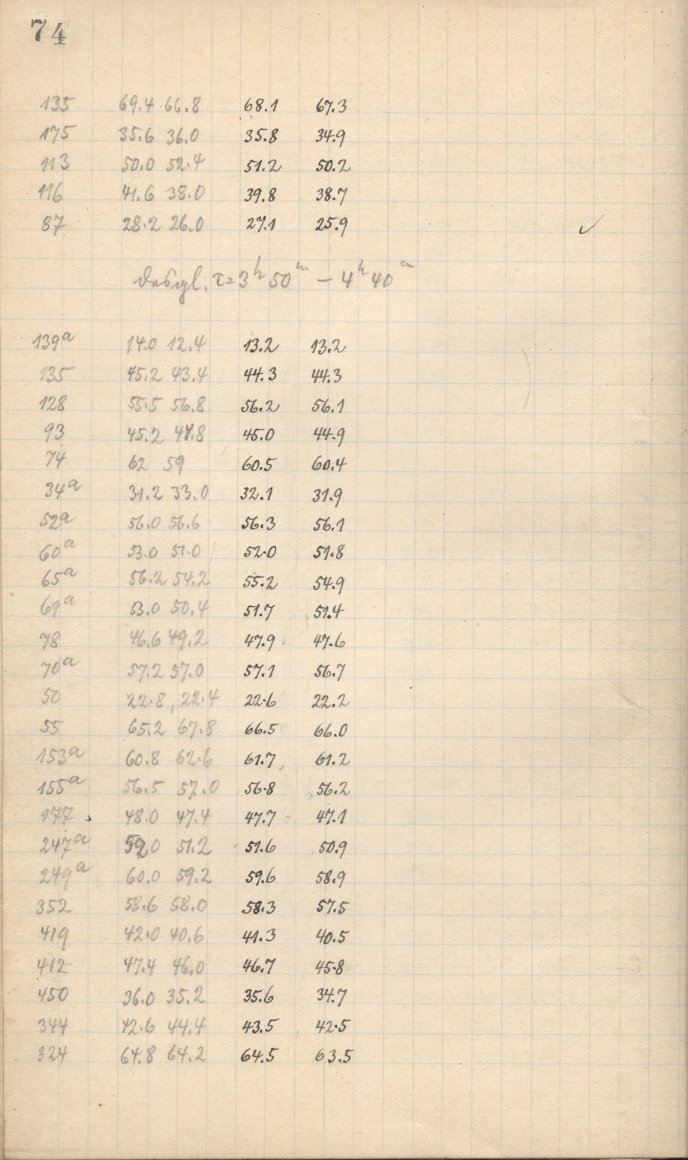 74
135 69.4 66.8 68.1 67.3
175 35.6 36.0 35.8 34.9
113 50.0 52.4 51.2 50.2
116 41.6 38.0 39.8 38.7
87 28.2 26.0 27.1 25.9
desgl. τ=3h 50m – 4h 40m
139a 14.0 12.4 13.2 13.2
135 45.2 43.4 44.3 44.3
128 55.5 56.8 56.2 56.1
93 45.2 44.8 45.0 44.9
74 62 59 60.5 60.4
34a 31.2 33.0 32.1 31.9
52a 56.0 56.6 56.3 56.1
60a 53.0 51.0 52.0 51.8
65a 56.2 54.2 55.2 54.9
69a 53.0 50.4 51.7 51.4
78 46.6 49.2 47.9 47.6
70a 57.2 57.0 57.1 56.7
50 22.8, 22.4 22.6 22.2
55 65.2 67.8 66.5 66.0
153a 60.8 62.6 61.7 61.2
155a 56.5 57.0 56.8 56.2
177 48.0 47.4 47.7 47.1
247a 52.0 51.2 51.6 50.9
249a 60.0 59.2 59.6 58.9
352 58.6 58.0 58.3 57.5
419 42.0 40.6 41.3 40.5
412 47.4 46.0 46.7 45.8
450 36.0 35.2 35.6 34.7
344 42.6 44.4 43.5 42.5
324 64.8 64.2 64.5 63.5